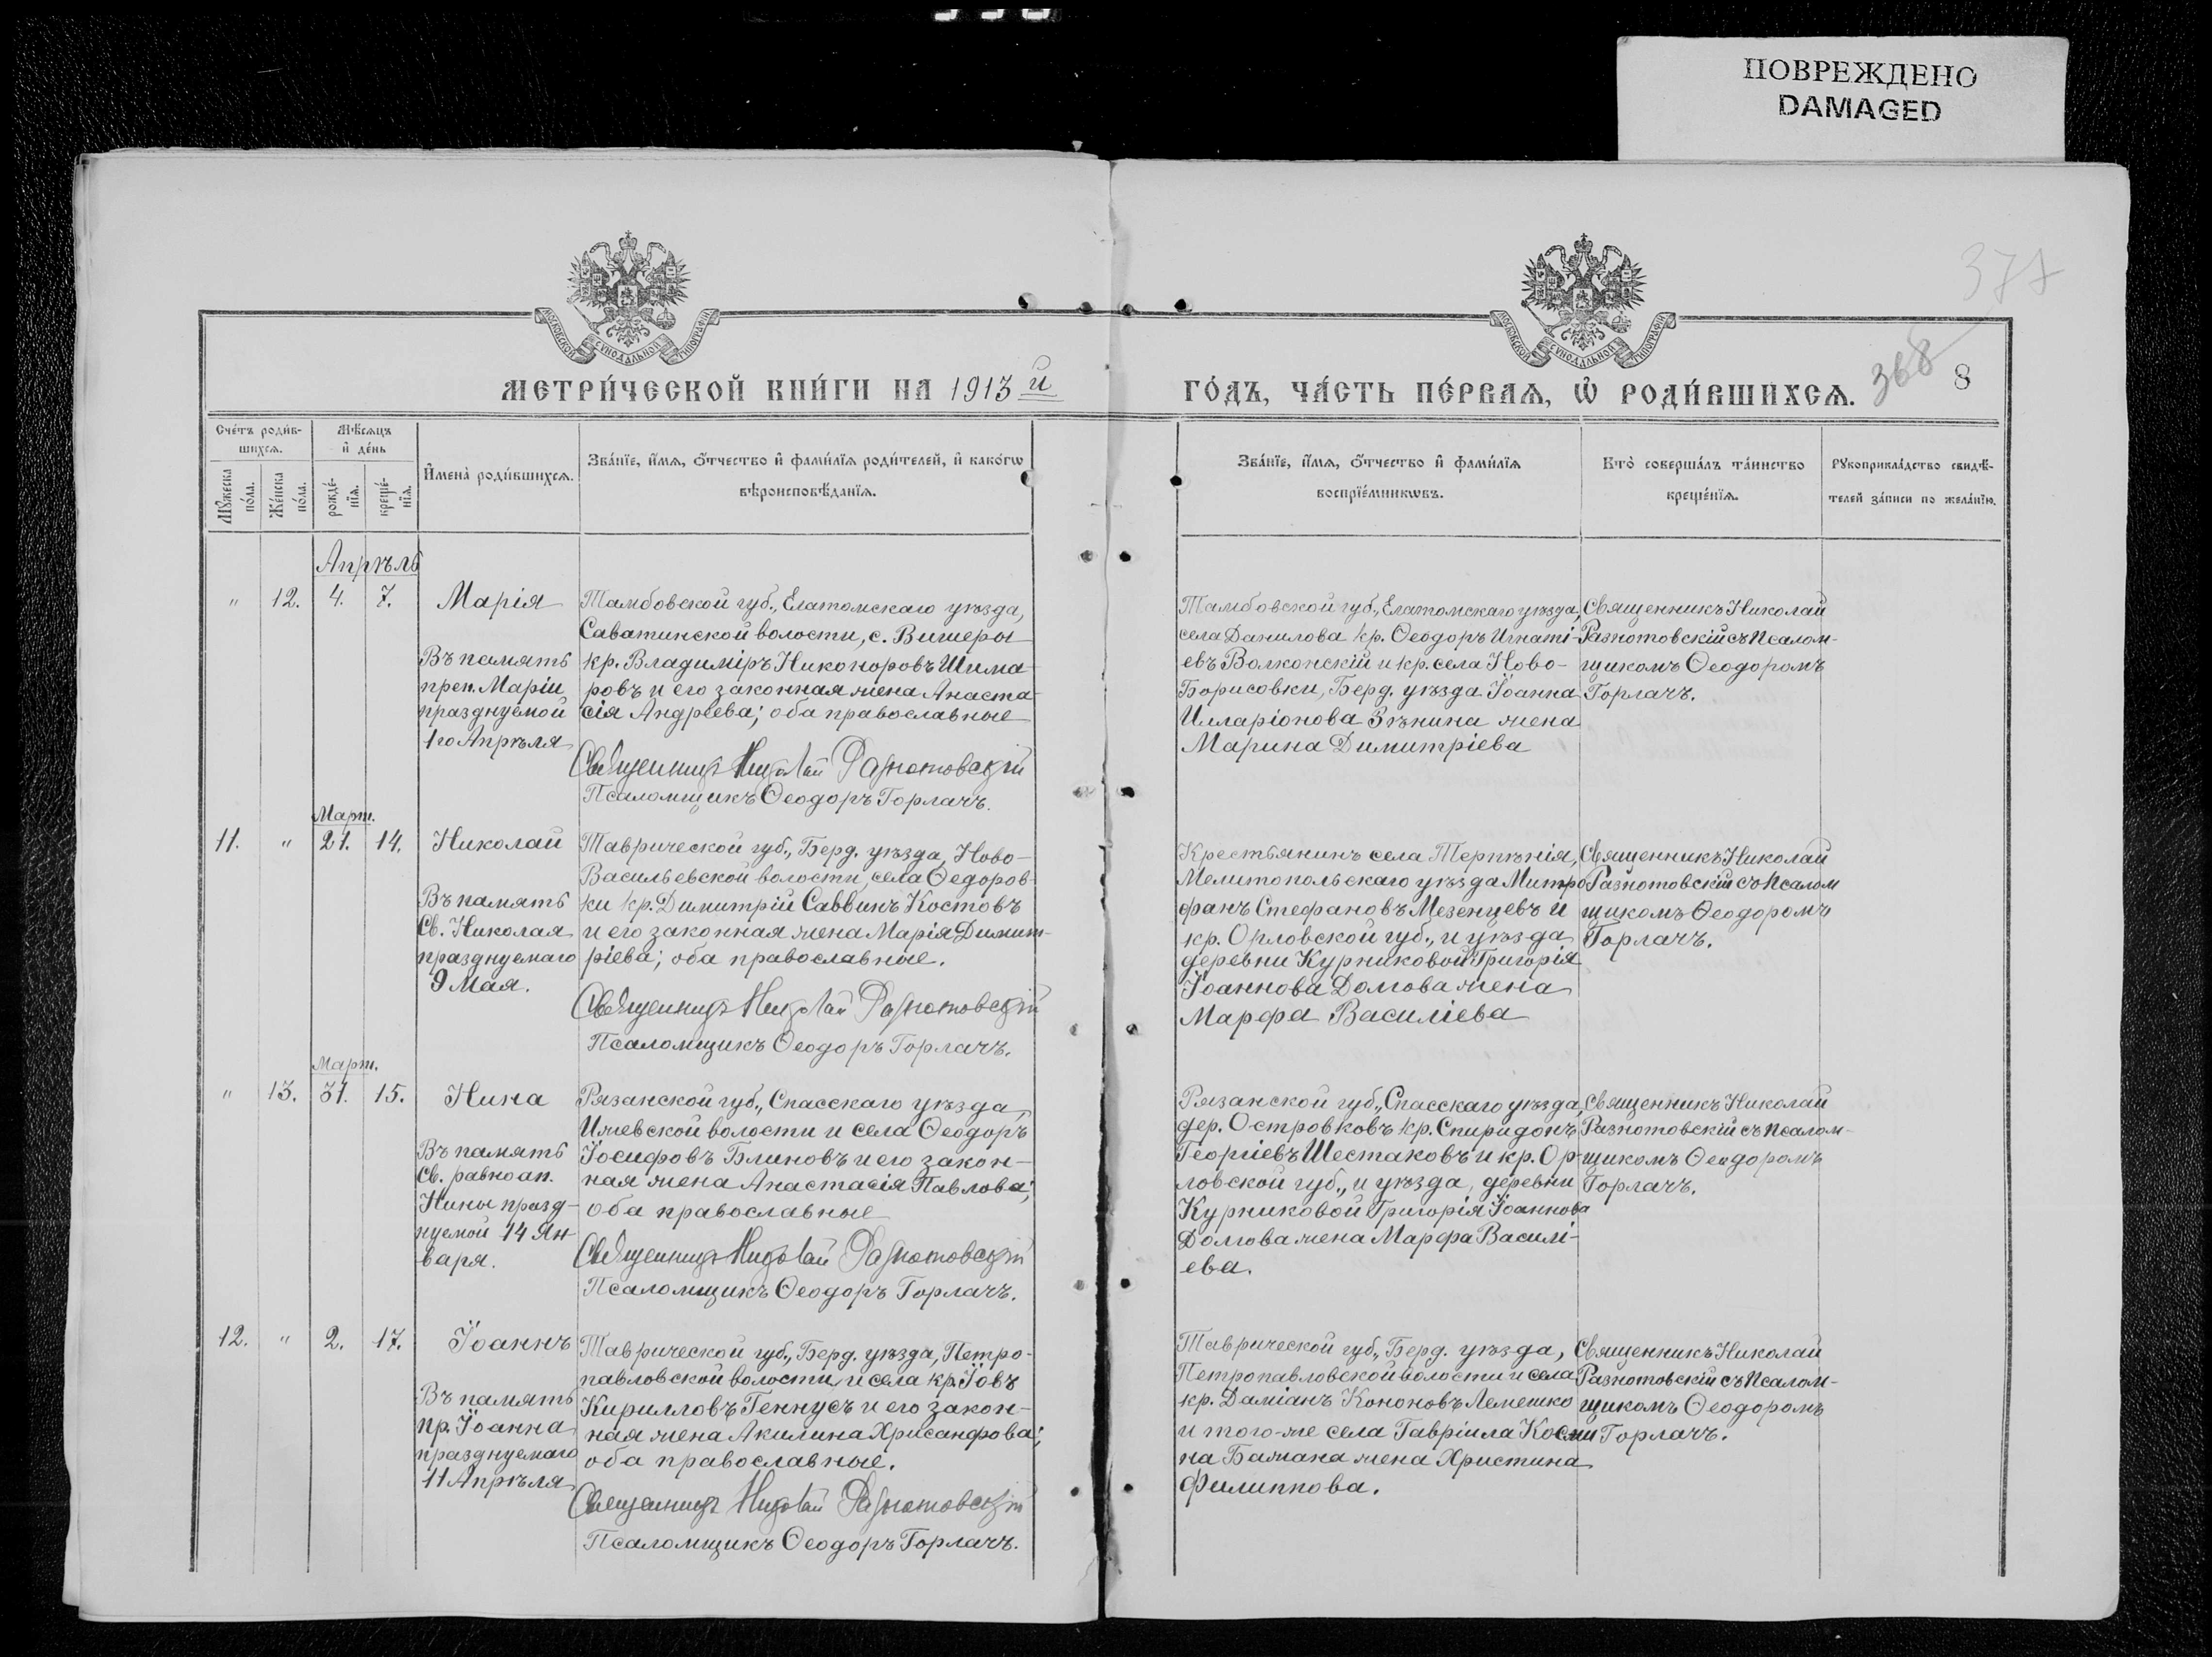 ПОВРЕЖДЕНО
DAMAGED
368
8
МЕТРИ́ЧЕСКОЙ КНИ́ГИ НА 1913 й
ГО́ДЪ, ЧА́СТЬ ПЕ́РВАѦ, Ѡ҆ РОДИ́ВШИХСѦ.
Сче́тъ роди́в-
шихсѧ.
Мѣ́сѧцъ
и҆ де́нь
Мꙋ́жеска по́ла.
Же́нска по́ла.
рожде́-
нїѧ.
креще́-
нїѧ.
И҆мена̀ роди́вшихсѧ.
Зва́нїе, и҆́мѧ, ѻ҆́тчество и҆ фами́лїѧ роди́телей, и҆ како́гѡ
вѣроисповѣ́данїѧ.
Зва́нїе, и҆́мѧ, ѻ҆́тчество и҆ фами́лїѧ
воспрїе́мникѡвъ.
Кто̀ соверша́лъ та́инство
креще́нїѧ.
Рꙋкоприкла́дство свидѣ́-
телей за́писи по жела́нїю.
Апрѣль
" 12. 4. 7. Марія
Въ память
преп. Маріи
празднуемой
1го Апрѣля
Тамбовской губ., Елатомскаго уѣзда,
Саватинской волости, с. Вишеры
кр. Владиміръ Никоноровъ Шима-
ровъ и его законная жена Анаста-
сія Андреева; оба православные
Священникъ Николай Разнотовскій
Псаломщикъ Ѳеодоръ Горлачъ.
Тамбовской губ., Елатомскаго уѣзда,
села Данилова кр. Ѳеодоръ Игнаті-
евъ Волконскій и кр. села Ново-
Борисовки, Берд. уѣзда Іоанна
Илларіонова Зѣнина жена
Марина Димитріева
Священникъ Николай
Разнотовскій съ псалом-
щикомъ Ѳеодоромъ
Горлачъ.
Март.
11. " 21. 14. Николай
Въ память
Св. Николая
празднуемаго
9 Мая.
Таврической губ., Берд. уѣзда, Ново-
Васильевской волости, села Ѳедоров-
ки кр. Димитрій Саввинъ Костовъ
и его законная жена Марія Димит-
ріева; оба православные.
Священникъ Николай Разнотовскій
Псаломщикъ Ѳеодоръ Горлачъ.
Крестьянинъ села Терпѣнія,
Мелитопольскаго уѣзда Митро
фанъ Стефановъ Мезенцевъ и
кр. Орловской губ., и уѣзда
деревни Курниковой Григорія
Іоаннова Долгова жена
Марфа Василіева
Священникъ Николай
Разнотовскій съ псалом
щикомъ Ѳеодоромъ
Горлачъ.
Март.
" 13. 31. 15. Нина
Въ память
Св. равноап.
Нины празд-
нуемой 14 Ян-
варя.
Рязанской губ., Спасскаго уѣзда,
Ижевской волости и села Ѳеодоръ
Іосифовъ Блиновъ и его закон-
ная жена Анастасія Павлова;
оба православные
Священникъ Николай Разнотовскій
Псаломщикъ Ѳеодоръ Горлачъ.
Рязанской губ., Спасскаго уѣзда,
дер. Островковъ кр. Спиридонъ
Георгіевъ Шестаковъ и кр. Ор-
ловской губ., и уѣзда, деревни
Курниковой Григорія Іоаннова
Долгова жена Марфа Василі-
ева.
Священникъ Николай
Разнотовскій съ псалом-
щикомъ Ѳеодоромъ
Горлачъ.
12. " 2. 17. Іоаннъ
Въ память
пр. Іоанна
празднуемаго
11 Апрѣля
Таврической губ., Берд. уѣзда, Петро-
павловской волости, и села кр. Іовъ
Кирилловъ Геннусъ и его закон-
ная жена Акилина Хрисанфова;
оба православные.
Священникъ Николай Разнотовскій
Псаломщикъ Ѳеодоръ Горлачъ.
Таврической губ., Берд. уѣзда,
Петропавловской волости и села
кр. Даміанъ Кононовъ Лемешко
и того-же села Гавріила Косми
на Бажана жена Христина
Филиппова.
Священникъ Николай
Разнотовскій съ псалом-
щикомъ Ѳеодоромъ
Горлачъ.